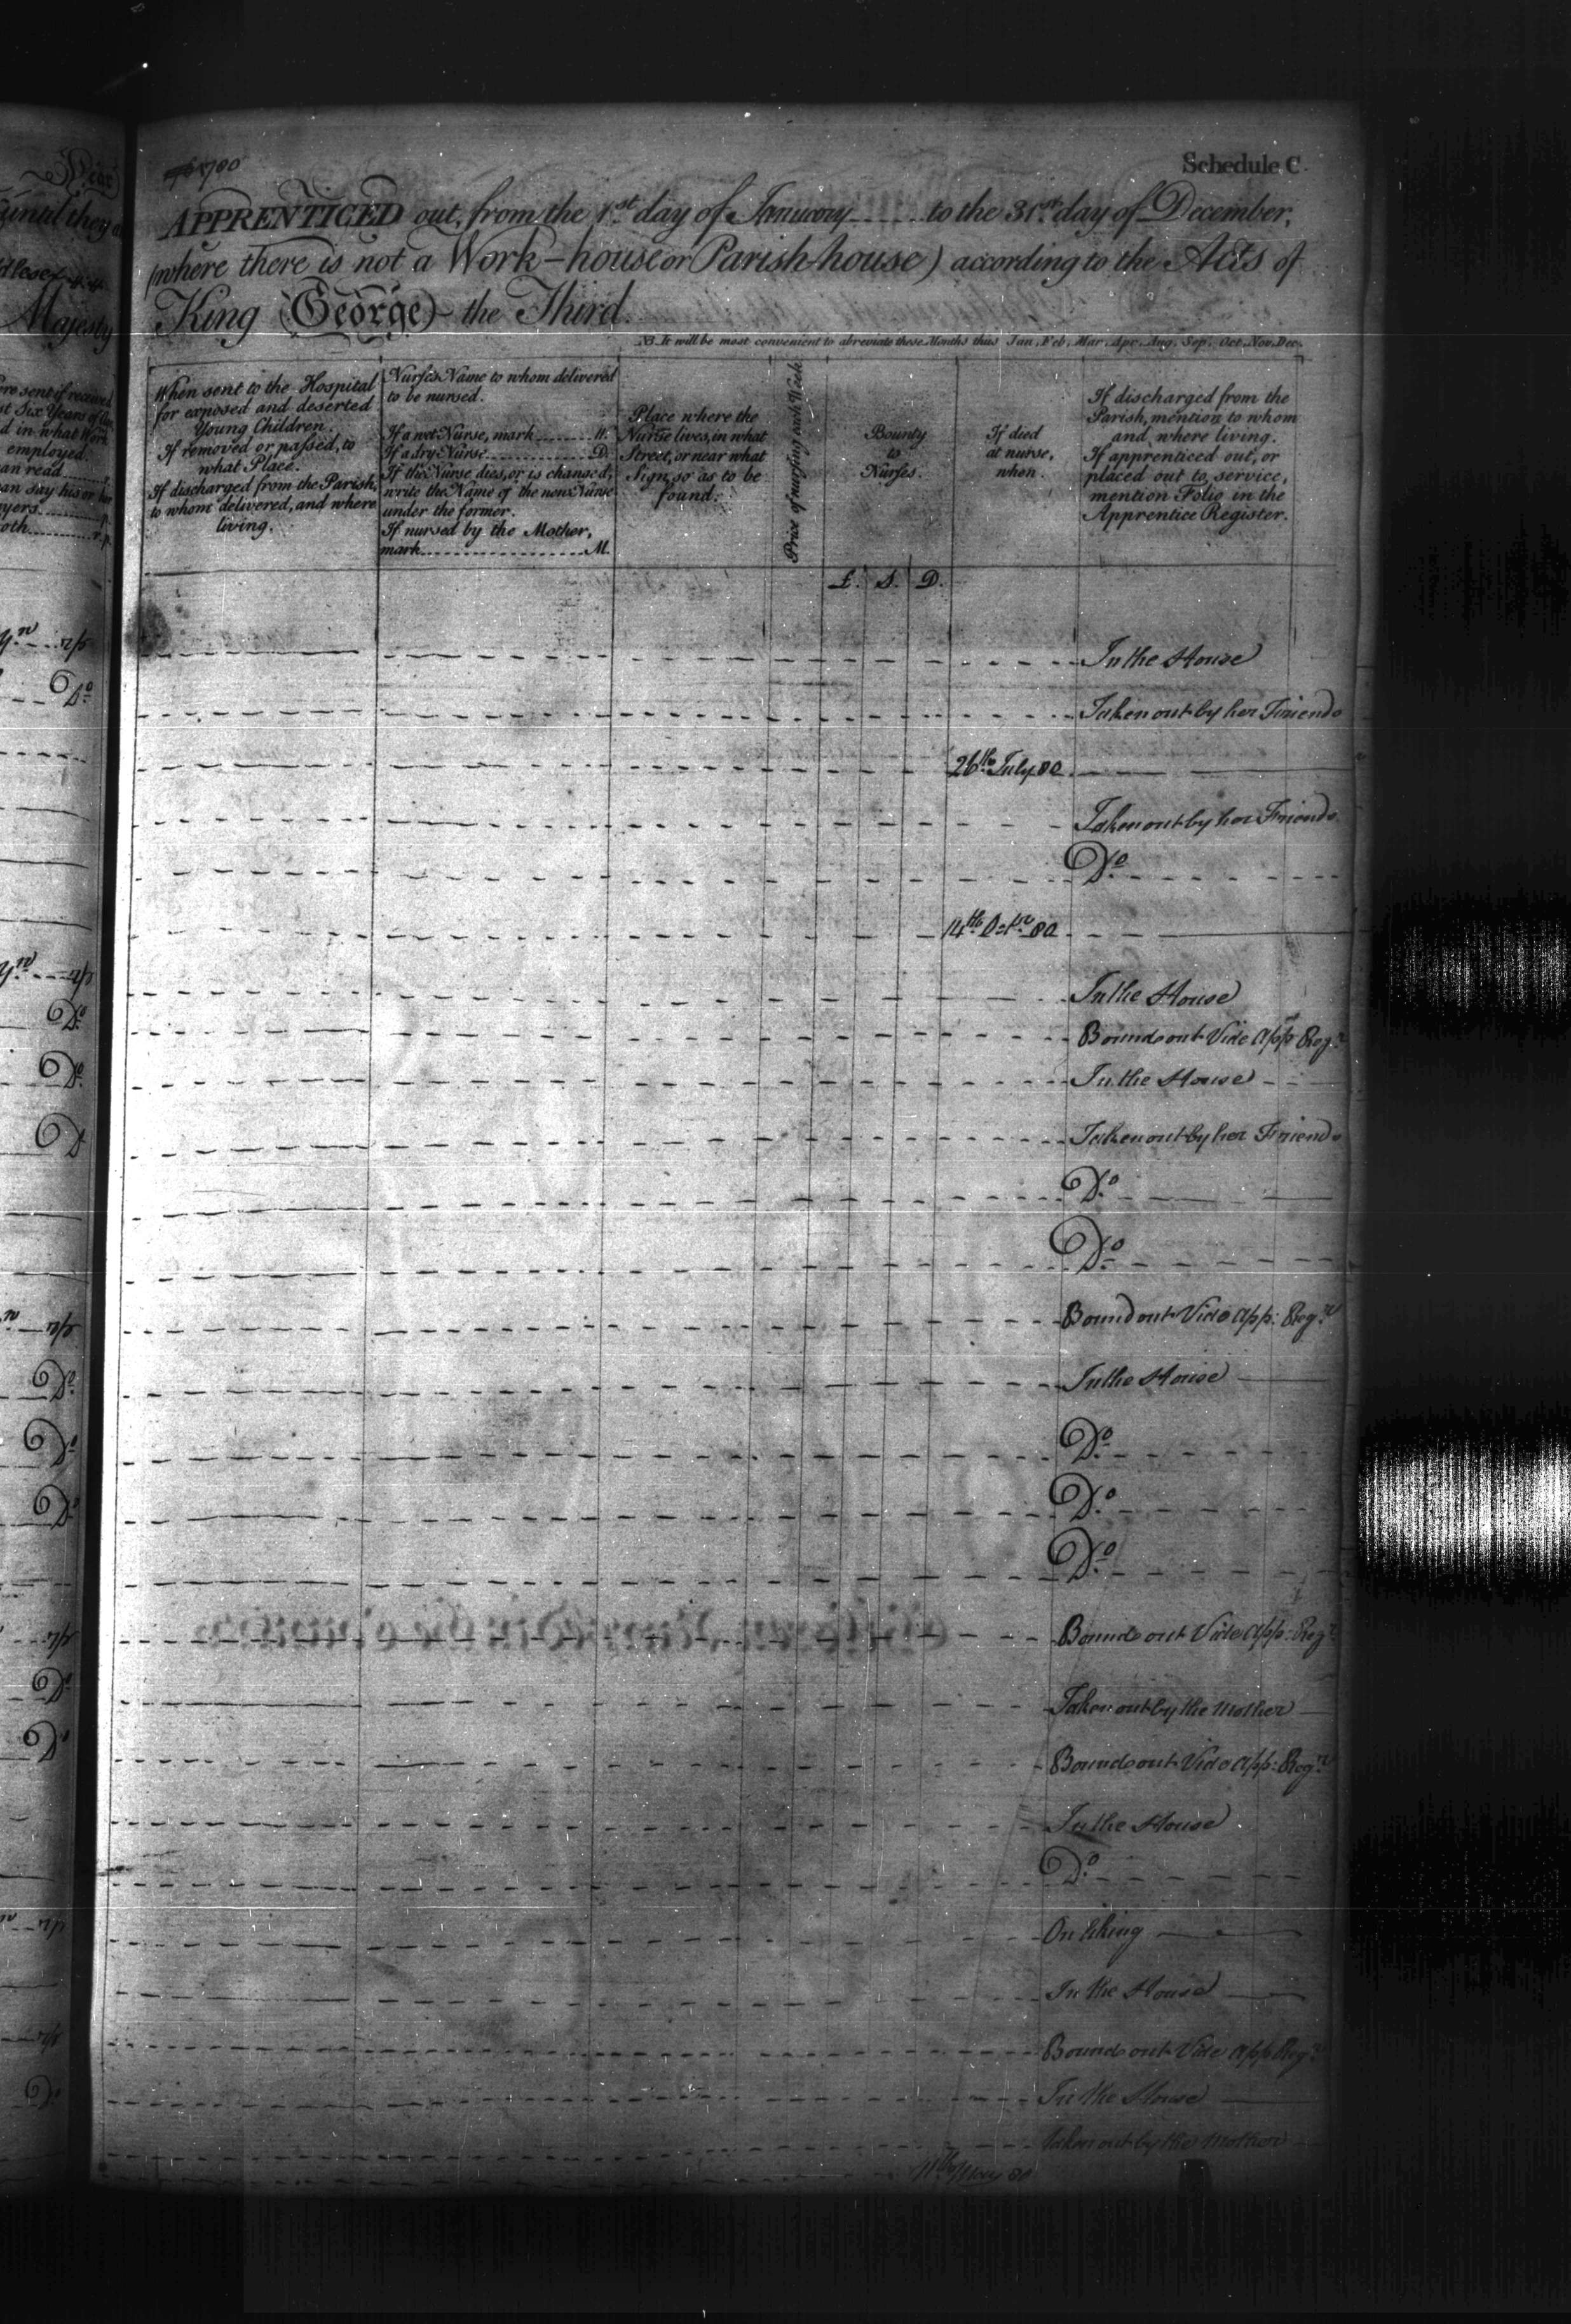 1780
Schedule C.
APPRENTICED out, from the 1st day of January to the 31st day of December,
(where there is not a Work-house or Parish house) according to the Acts of
King George the Third.
NB. It will be most convenient to abreviate these Months thus Jan. Feb. Mar. Apr. Aug. Sep. Oct. Nov. Dec.
When sent to the Hospital
for exposed and deserted
Young Children.
If removed or passed, to
what Place.
If discharged from the Parish,
to whom delivered, and where
living.
Nurses Name to whom delivered
to be nursed.
If a wet Nurse, mark W.
If a dry Nurse D.
If the Nurse dies, or is changed,
write the Name of the new Nurse
under the former.
If nursed by the Mother,
mark M.
Place where the
Nurse lives, in what
Street, or near what
Sign, so as to be
found.
Price of nursing each Week
Bounty
to
Nurses.
If died
at nurse,
when.
If discharged from the
Parish, mention to whom
and where living.
If apprenticed out, or
placed out to service,
mention Folio in the
Apprentice Register.
£. S. D.
In the House
Taken out by her Friends
26th July 80
Taken out by her Friends
Do
14th Octr 80
In the House
Bound out Vide App Regr
In the House
Taken out by her Friends
Do
Do
Bound out Vide App: Regr
In the House
Do
Do
Do
Bound out Vide App: Regr
Taken out by the Mother
Bound out Vide App: Regr
In the House
Do
On liking
In the House
Bound out Vide App Regr
In the House
Taken out by the Mother
May 80